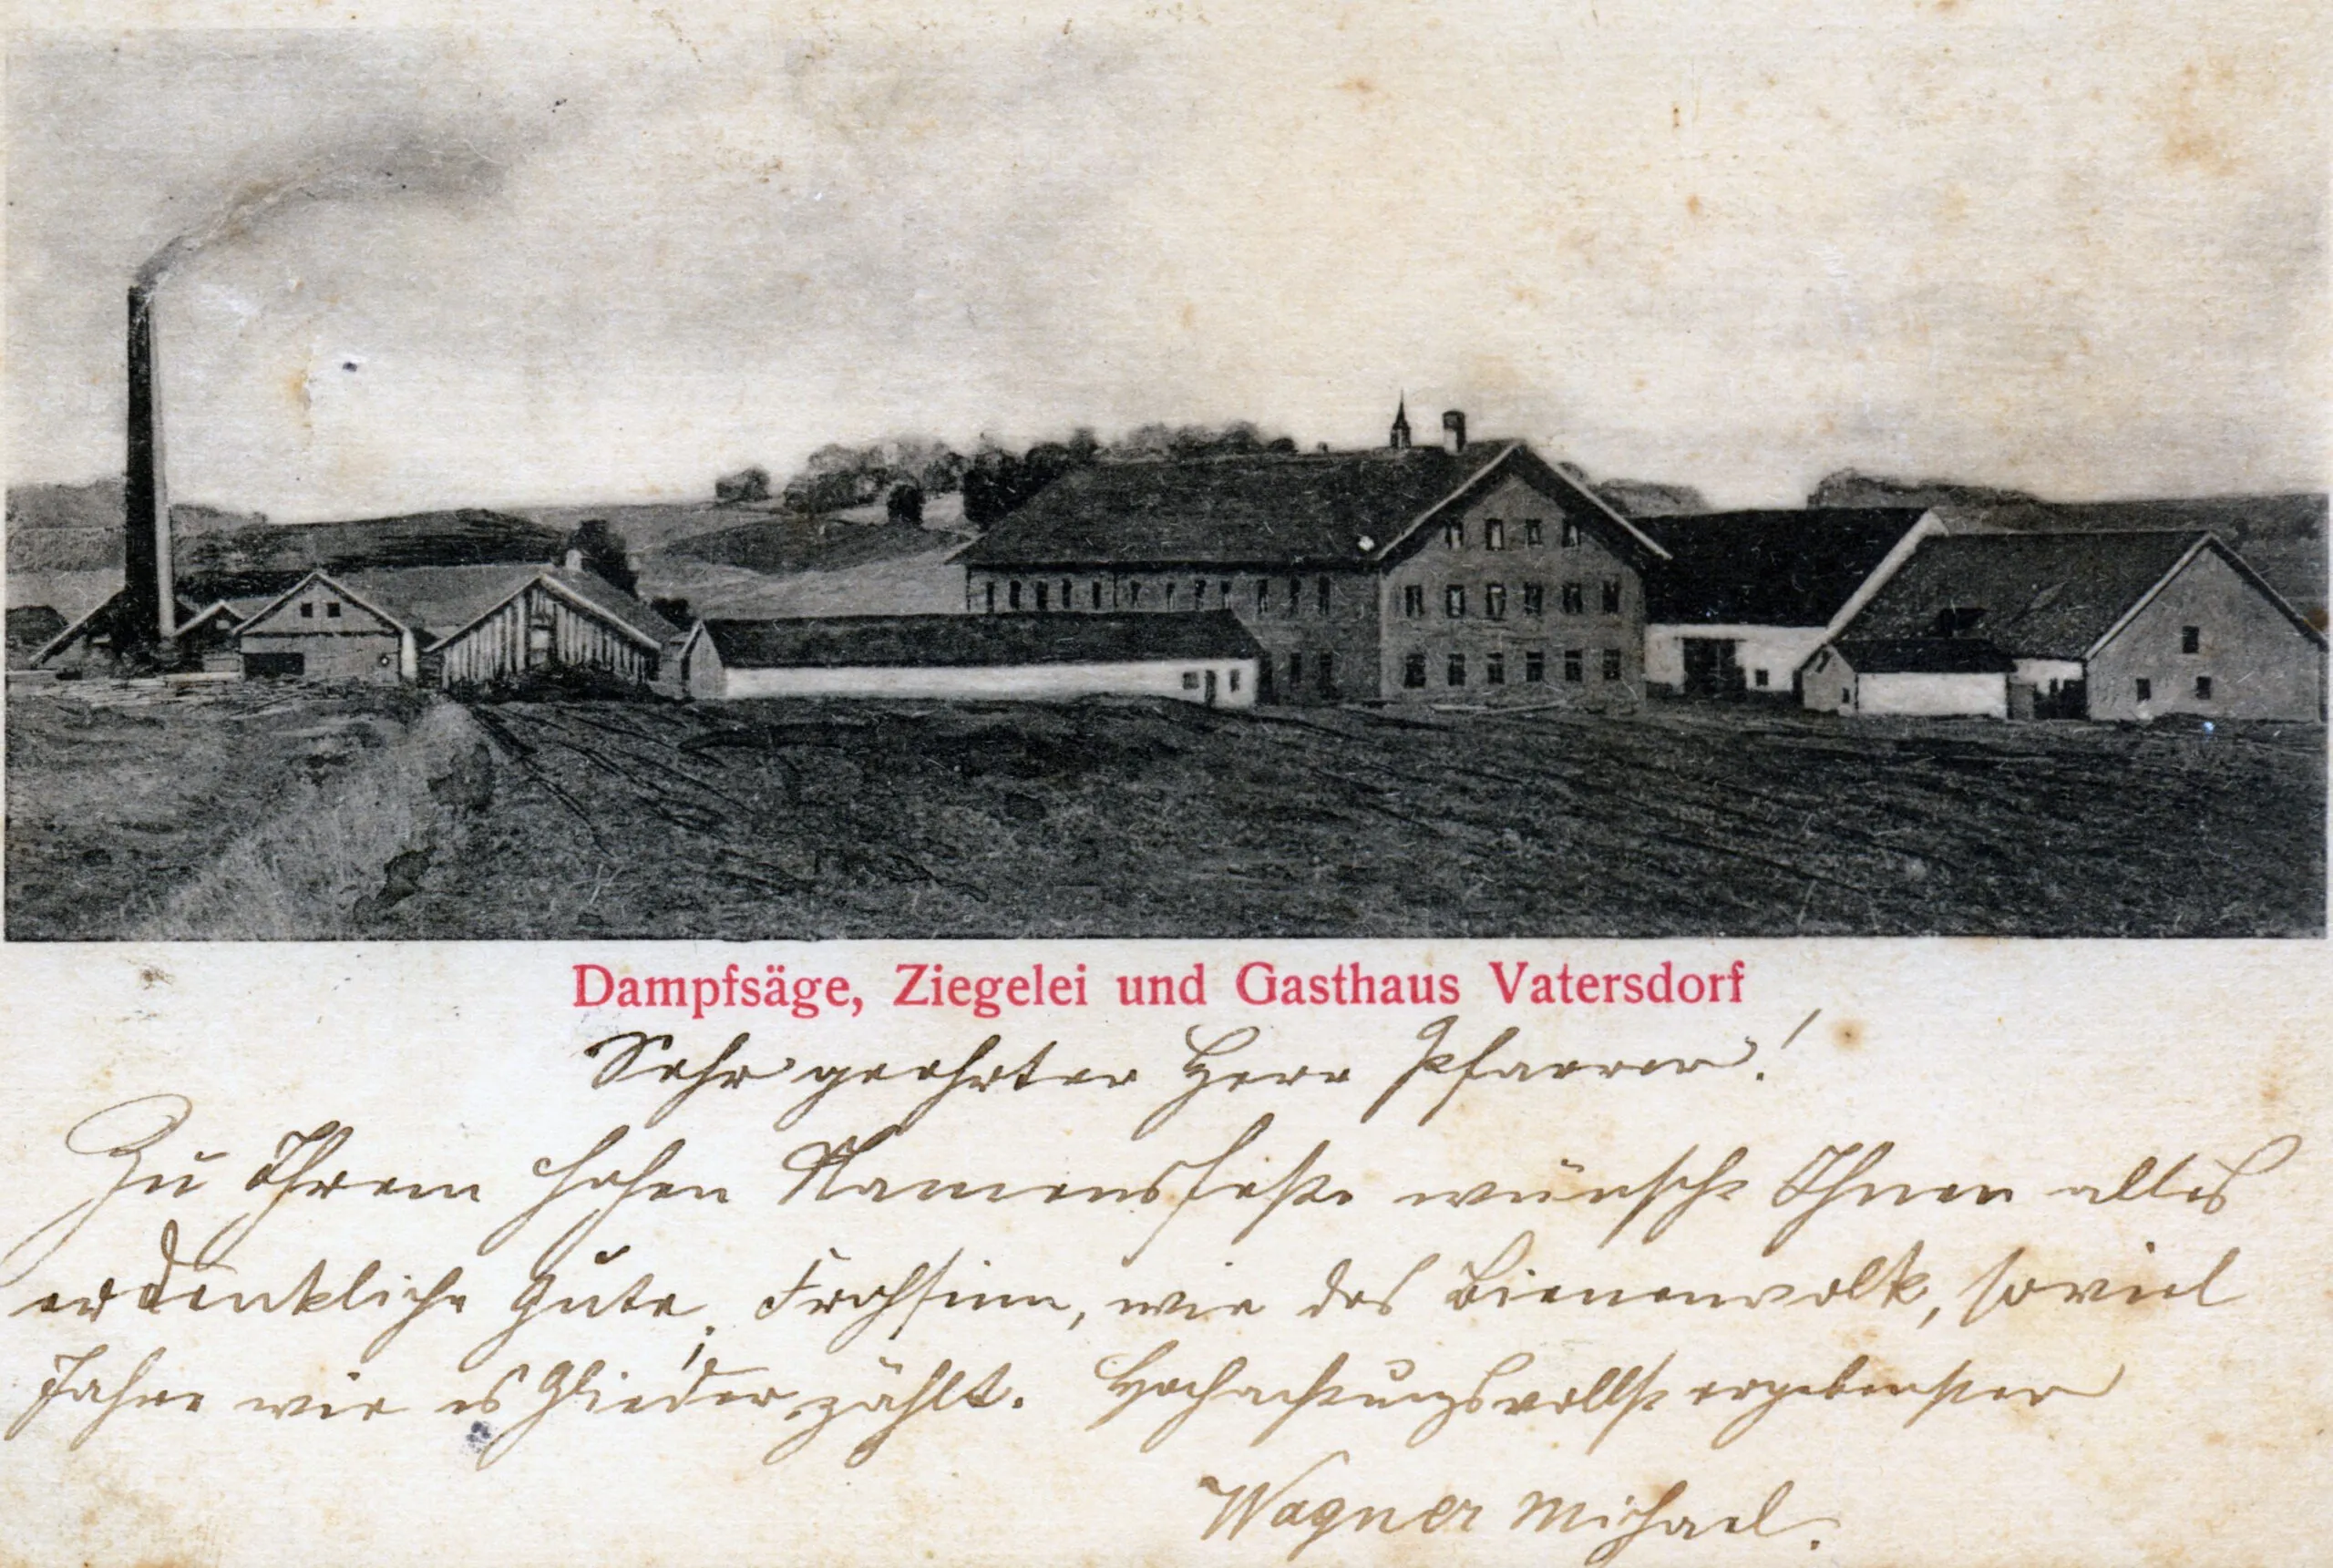 Dampfsäge, Ziegelei und Gasthaus Vatersdorf
Sehr geehrter Herr Pfarrer!
Zu Ihrem hohen Namensfeste wünsche Ihnen alles
erdenkliche Gute, Frohsinn, wie das Bienenvolk, soviel
Jahre wie es Glieder zählt. Hochachtungsvollst ergebenster
Wagner Michael.